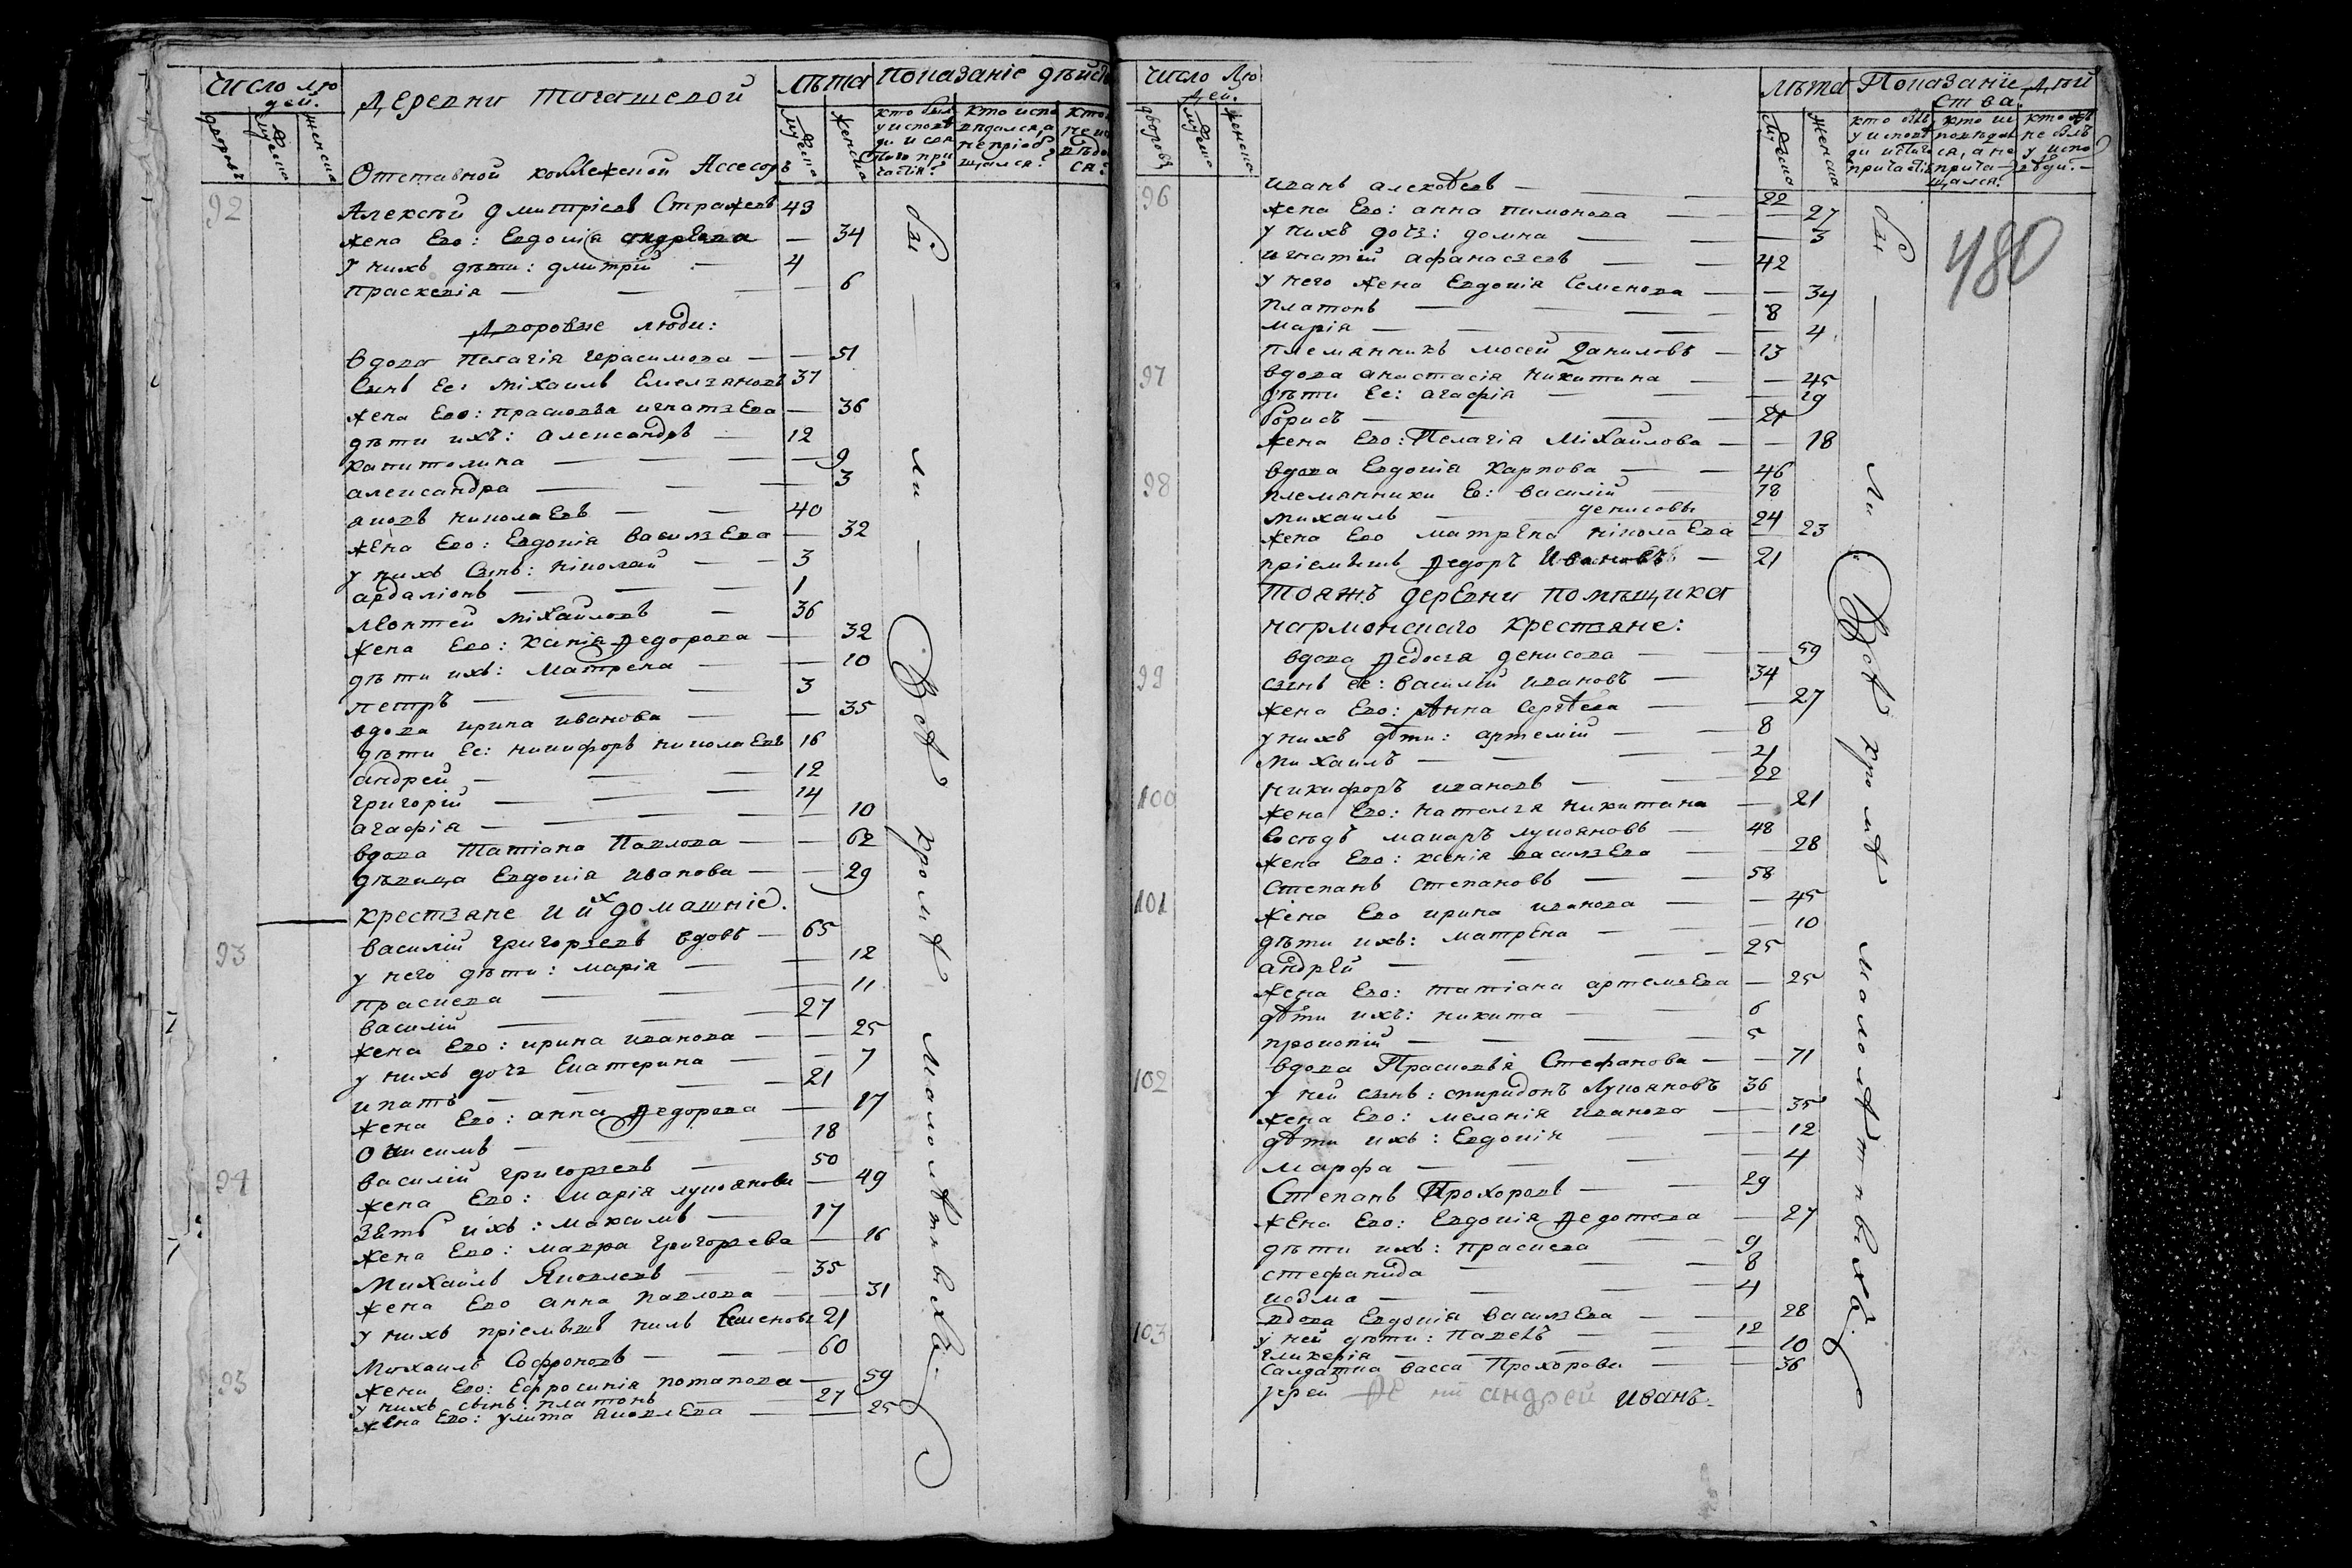 Число лю
дей.
дворовъ
мужеска
женска
Деревни
лѣта
мужеска
женска
Показаніе дѣйст
кто былъ
у исповѣ
ди и свя
таго при
частія?
кто испо
вѣдался, а
не пріоб
щался?
Отставной коллежской Ассесоръ
92 Алексѣй Дмитріевъ 43
жена Его: Евдокія андрѣева — 34
у нихъ дѣти: дмитрій — 4
праскевія — 6
Дворовые люди:
вдова Пелагія герасимова — 51
Сынъ Ее: міхаилъ Емельяновъ 37
жена Его: прасковья игнатьЕва — 36
дѣти ихъ: александръ — 12
капитолина — 9
александра — 3
яковъ николаЕвъ — 40
жена Его: Евдокія васильЕва — 32
у нихъ Сынъ: ніколай — 3
ардаліонъ — 1
леонтей міхайловъ — 36
жена Его: Ѳедорова — 32
дѣти ихъ: матрена — 10
петръ — 3
вдова ирина иванова — 35
дѣти Ее: никифоръ николаЕвъ 16
андрей — 12
григорій — 14
агафія — 10
вдова Татіана Павлова — 62
дѣвица Евдокія иванова — 29
крестьяне и их домашніе.
93 василій григорьевъ вдовъ — 65
у него дѣти: марія — 12
праскева — 11
василій — 27
жена Его: ирина иванова — 25
у нихъ дочь Екатерина — 7
ипатъ — 21
жена Его: анна Ѳедорова — 17
Онисимъ — 18
94 василій григорьевъ — 50
жена Его: марія лукоянова — 49
Зять ихъ: максимъ — 17
жена Его: мавра григорьева — 16
михаилъ Яковлевъ — 35
жена Его анна павлова — 31
у нихъ пріемышъ нилъ Семеновъ 21
95 михаилъ Софроновъ — 60
жена Его: Ефросинія потапова — 59
у нихъ сынъ: платонъ — 27
жена Его: улита яковлЕва — 25
были Всѣ кромѣ малолѣтныхъ.
Число Лю
дей.
дворовъ
мужеска
женска
лѣта
мужеска
женска
Показаніе дѣй
ства.
кто былъ
у исповѣ
ди
кто не
былъ
у испо
вѣди. —
480
96 иванъ — 22
жена Его: анна пимонова — 27
у нихъ дочь: домна — 3
игнатій афанасьевъ — 42
у него жена Евдокія Семенова — 34
платонъ — 8
марія — 4
племянникъ мосей Даниловъ — 13
97 вдова анастасія никитина — 45
дѣти Ее: агафія — 19
борисъ — 21
жена Его: Пелагія Міхайлова — 18
98 вдова Евдокія карпова — 46
племянники Ее: василій — 18
михаилъ — денисовы 24
жена Его матрЕна ніколаЕва — 23
пріемышъ Ѳедоръ Ивановъ — 21
тояжъ дерЕвни помѣщика
нармонскаго крестьяне:
99 вдова Ѳедосья денисова — 59
сынъ ее: василій ивановъ — 34
жена Его: Анна Сергѣева — 27
у нихъ дѣти: артемій — 8
михаилъ — 4
100 никифоръ ивановъ — 22
жена Его: наталья никитина — 21
Сосѣдъ макаръ лукояновъ — 48
жена Его: ксенія васильЕва — 28
101 степанъ степановъ — 58
жена Его ирина иванова — 45
дѣти ихъ: матрена — 10
андрей — 25
жена Его: татіана артемьЕва — 25
дѣти ихъ: никита — 6
прокопій — 5
102 вдова Прасковья Стефанова — 71
у ней сынъ: спиридонъ Лукояновъ 36
жена Его: меланія иванова — 35
дѣти ихъ: Евдокія — 12
марфа — 4
Степанъ Прохоровъ — 29
жена Его: Евдокія Ѳедотова — 27
дѣти ихъ: праскева — 9
стефанида — 8
козма — 4
103 вдова Евдокія васильЕва — 28
у ней дѣти: Павелъ — 12
гликерія — 10
Салдатка васса Прохорова — 36
андрей Иванъ.
были Всѣ кромѣ малолѣтныхъ.